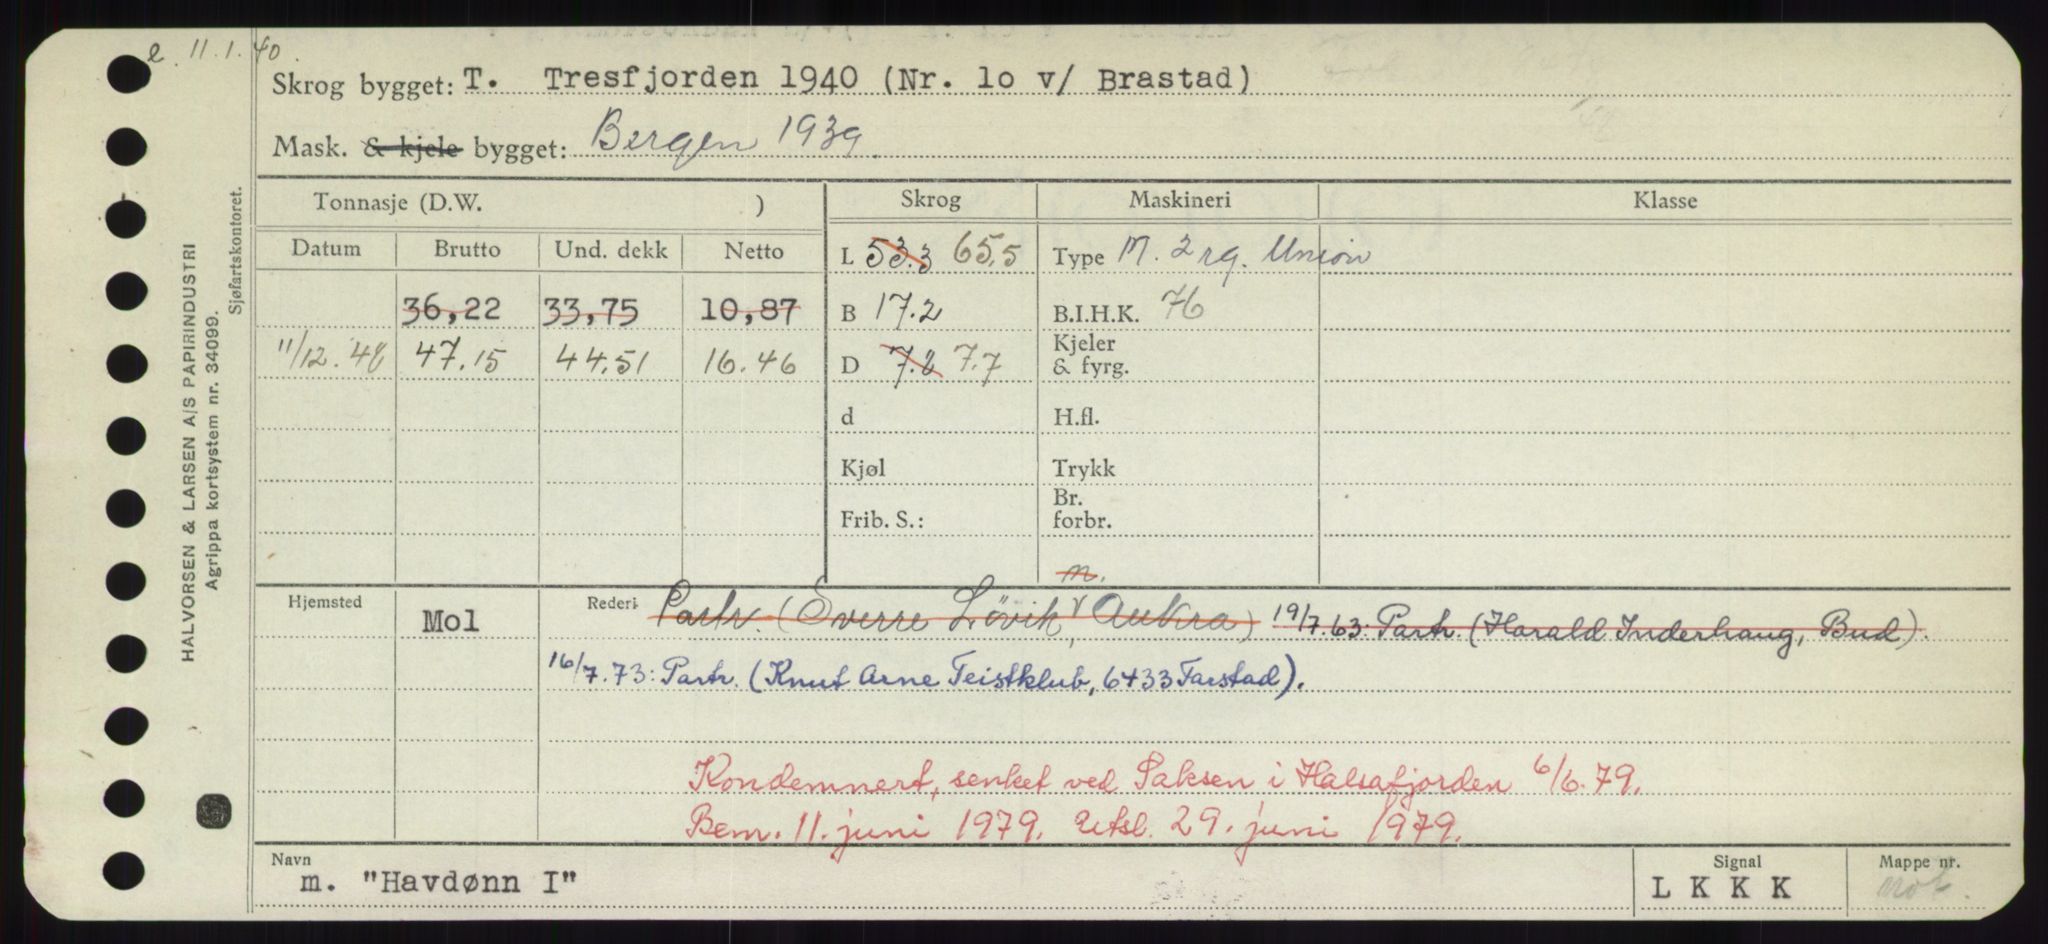 e. 11.1.40.
Skrog bygget: T. Tresfjorden 1940 (Nr. 1o v/ Brastad)
Mask. & kjele bygget: Bergen 1939.
Tonnasje (D.W. ) Skrog Maskineri Klasse
Datum Brutto Und. dekk Netto L 53.3 65,5 Type M. 2 rg. Union
36,22 33,75 10,87 B 17.2 B.I.H.K. 76
11/12.48 47.15 44.51 16.46 D 7.2 7.7 Kjeler & fyrg.
d H.fl.
Kjøl Trykk
Frib. S.: Br. forbr.
m.
Hjemsted Mol Rederi Partr. (Sverre Løvik, Aukra) 19/7.63: Partr. (Harald Inderhaug, Bud).
16/7.73: Partr. (Knut Arne Teistklub, 6433 Farstad).
Kondemnert, senket ved Saksen i Halsafjorden 6/6.79.
Bem. 11. juni 1979. Utsl. 29. juni 1979.
Navn m. "Havdønn I" Signal LKKK Mappe nr. mot.
HALVORSEN & LARSEN A/S PAPIRINDUSTRI
Agrippa kortsystem nr. 34099.
Sjøfartskontoret.